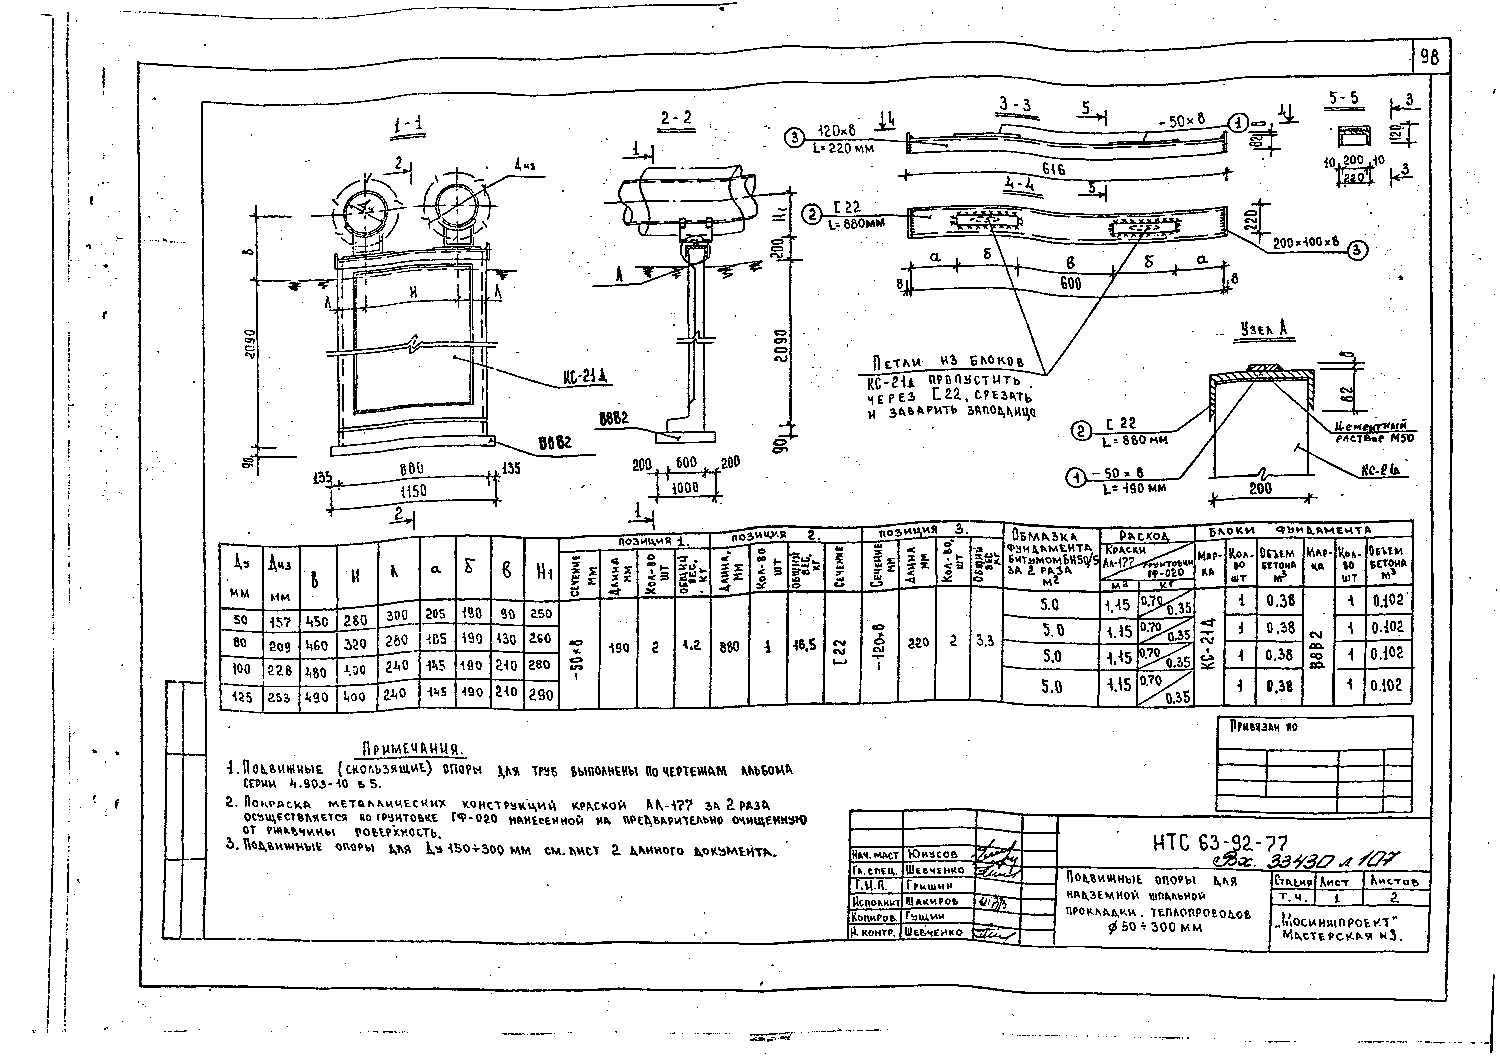 98
1-1
2
Диз
В
2090
90
Л
И
Л
КС-21Д
ВВВ2
135
880
135
1150
2
2-2
1
Н1
200
Л
2090
90
ВВВ2
200
600
200
1000
1
3-3
5
4
4
3
120×8
L=220 мм
-50×8
1
82
616
4-4
5
2
[ 22
L=880мм
220
200×100×8
3
а
б
в
б
а
8
600
8
5-5
3
120
10
200
10
220
3
Петли из блоков
КС-21Д пропустить
через [22, срезать
и заварить заподлицо
Узел А
8
82
2
[ 22
L=880 мм
1
-50×8
L=190 мм
Цементный
раствор М50
КС-21Д
200
Ду мм
Диз мм
В
И
Л
а
б
в
Н1
Позиция 1.
Сечение мм
Длина мм
Кол-во шт
Общий вес, кг
Позиция 2.
Длина, мм
Кол-во шт
Общий вес, кг
Сечение
Позиция 3.
Сечение мм
Длина мм
Кол-во, шт
Общий вес кг
Обмазка фундамента битумом БН50/5 за 2 раза м²
Расход
Краски АЛ-177 м²
Грунтовки ГФ-020 кг
Блоки фундамента
Мар-ка
Кол-во шт
Объем бетона м³
Мар-ка
Кол-во шт
Объем бетона м³
50 157 450 280 300 205 190 90 250 5.0 1.15 0.70 0.35 1 0.38 1 0.102
80 209 460 320 280 185 190 130 260 5.0 1.15 0.70 0.35 1 0.38 1 0.102
100 228 480 400 240 145 190 210 280 5.0 1.15 0.70 0.35 1 0.38 1 0.102
125 253 490 400 240 145 190 210 290 5.0 1.15 0.70 0.35 1 0.38 1 0.102
-50×8 190 2 1.2 880 1 18,5 [22 -120×8 220 2 3.3 КС-21Д ВВВ2
Привязан по
Примечания.
1. Подвижные (скользящие) опоры для труб выполнены по чертежам альбома
серии 4.903-10 в 5.
2. Покраска металлических конструкций краской АЛ-177 за 2 раза
осуществляется по грунтовке ГФ-020 нанесенной на предварительно очищенную
от ржавчины поверхность.
3. Подвижные опоры для Ду 150÷300 мм см. лист 2 данного документа.
Нач. маст Юнусов
Гл. спец. Шевченко
Г.И.П. Гришин
Исполнит Шакиров
Копиров. Гущин
Н. контр. Шевченко
НТС 63-92-77
Вх. 33430 л 107
Подвижные опоры для
надземной шпальной
прокладки. теплопроводов
Ø 50 ÷ 300 мм
Стадия Лист Листов
Т.Ч. 1 2
„Мосинжпроект“
Мастерская №3.